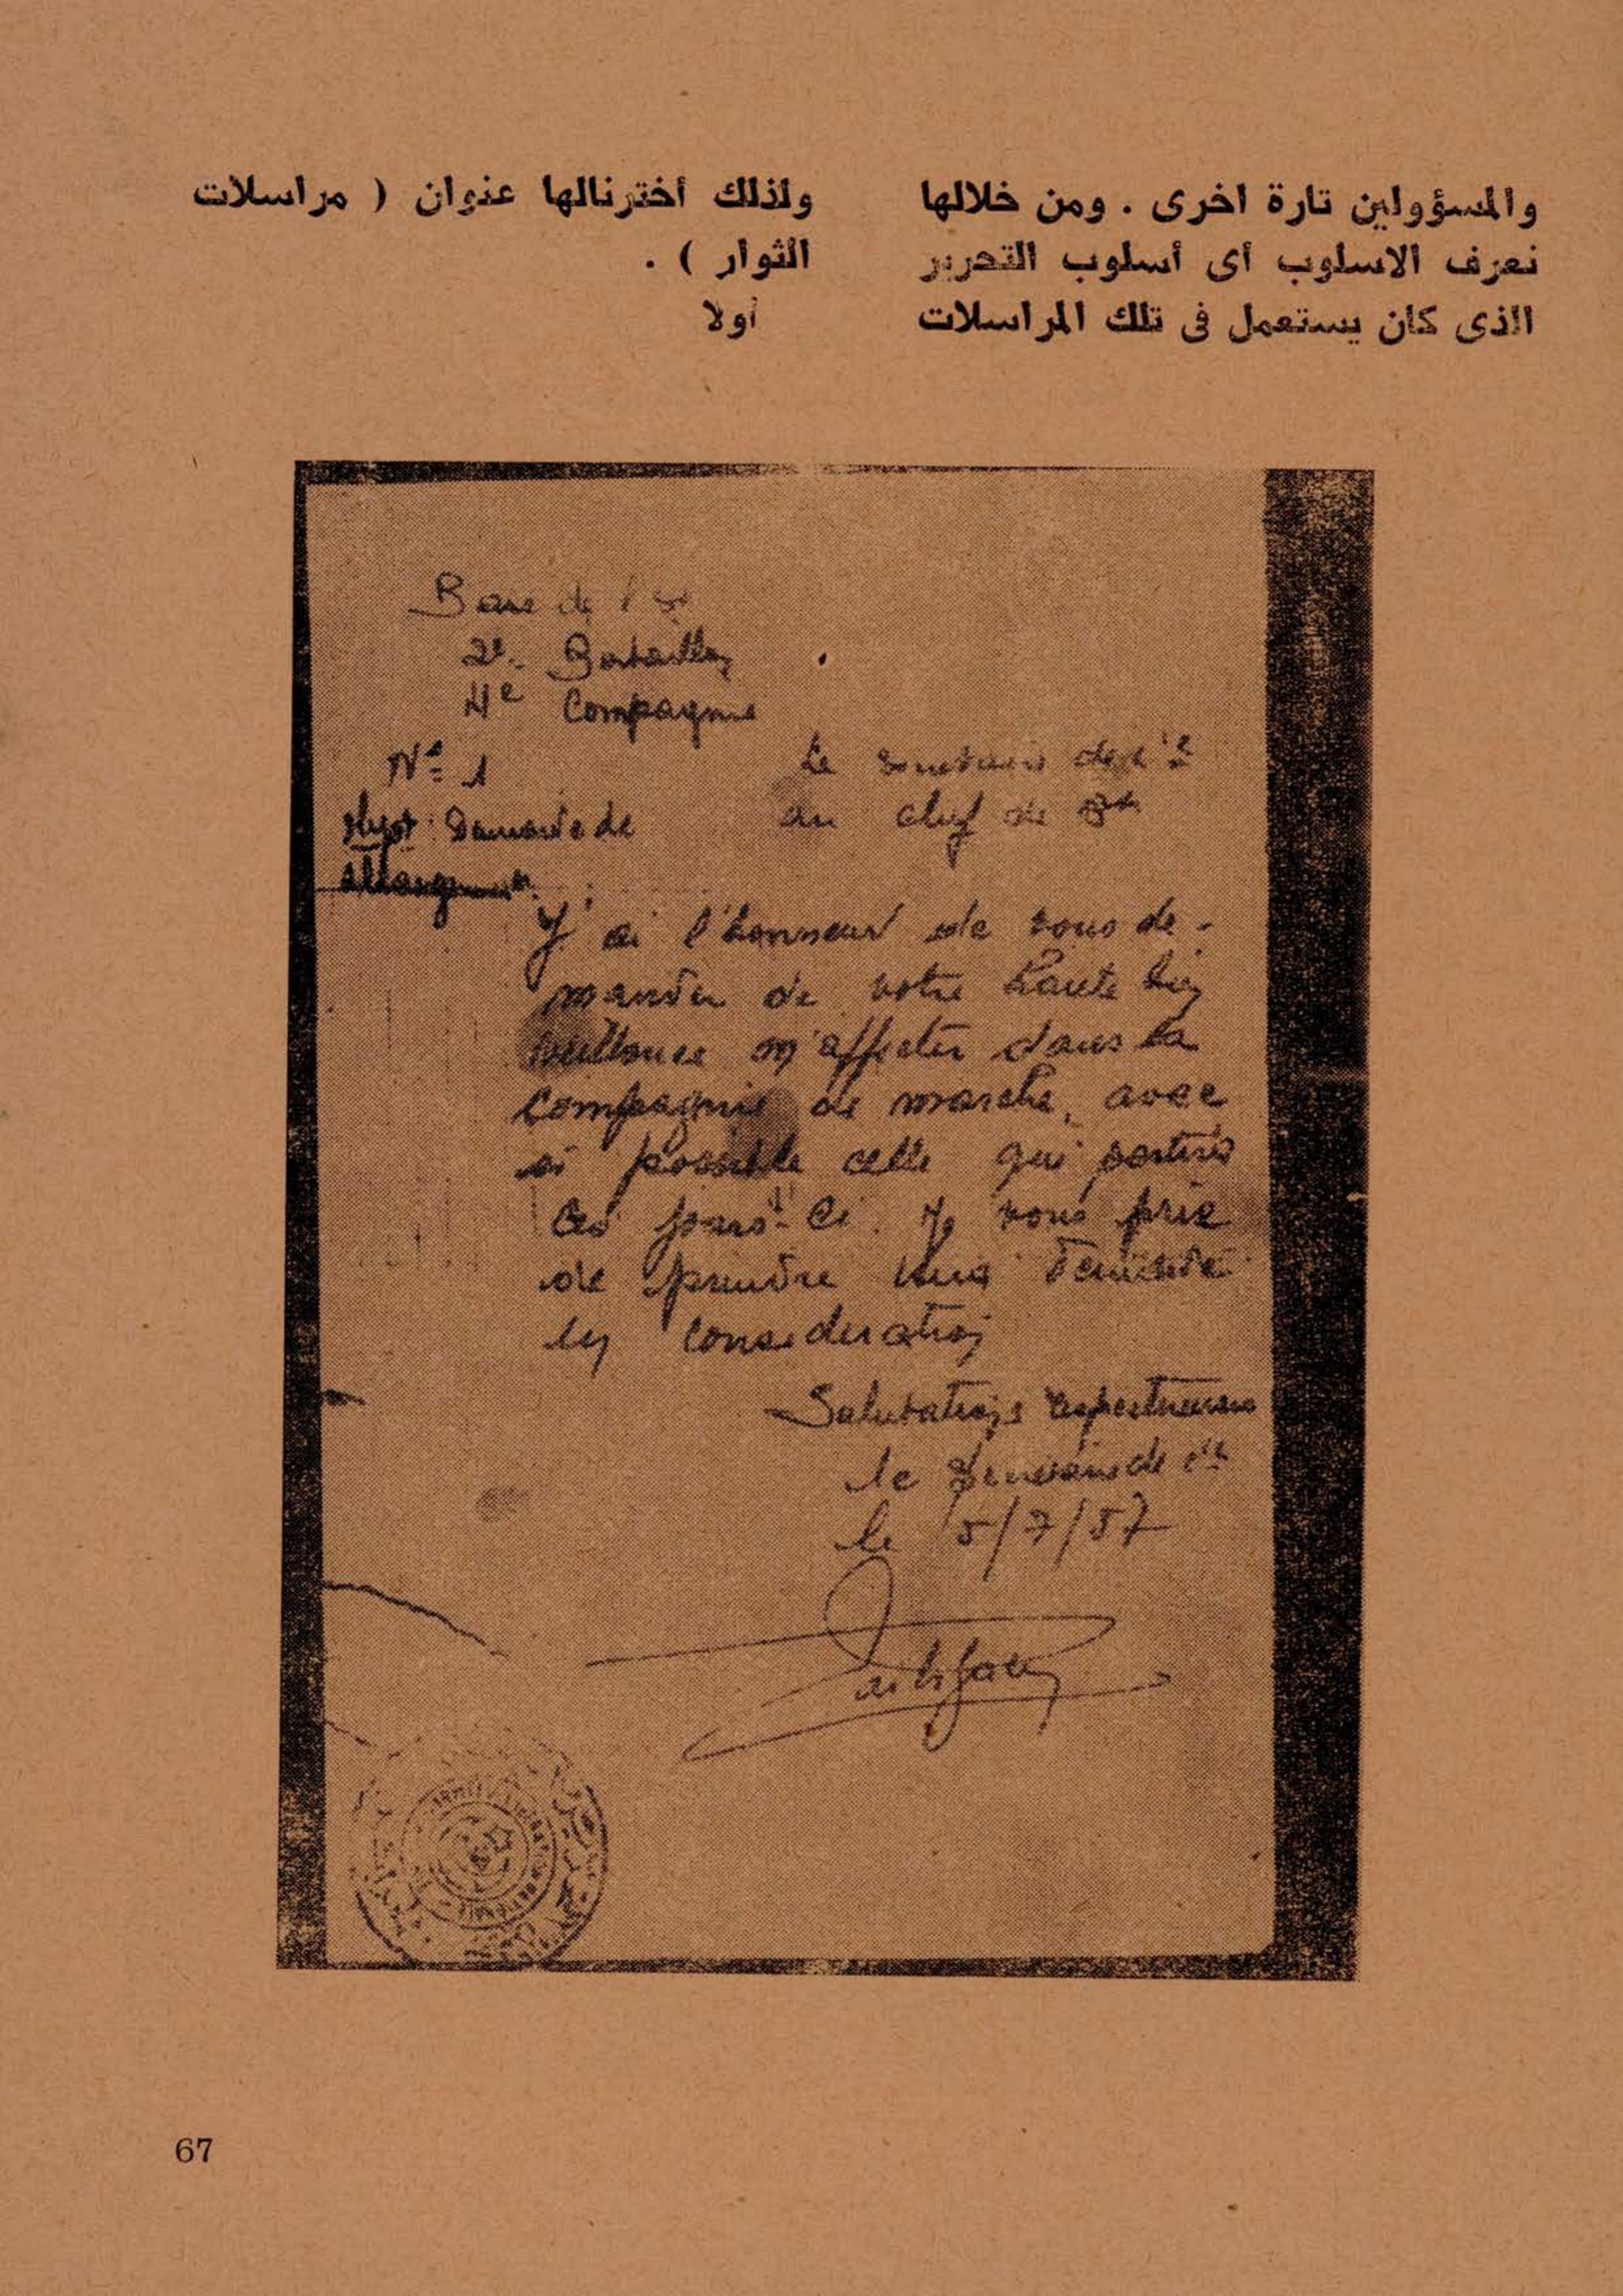 والمسؤولين تارة اخرى . ومن خلالها
نعرف الاسلوب أى أسلوب التحرير
الذى كان يستعمل فى تلك المراسلات
ولذلك أخترنالها عنوان ( مراسلات
الثوار ) .
أولا
Base de l'
2e. Bataillon
4e Compagnie
N° 1
Objet : Demande de
Le
au chef de
J'ai l'honneur de vous de-
mander de votre haute bien
veillance m'affecter dans la
compagnie de marche, avec
si possible celle qui partira
ces jours-ci. Je vous prie
de prendre ma demande
en consideration
Salutations respectueuses
le
le 5/7/57
67